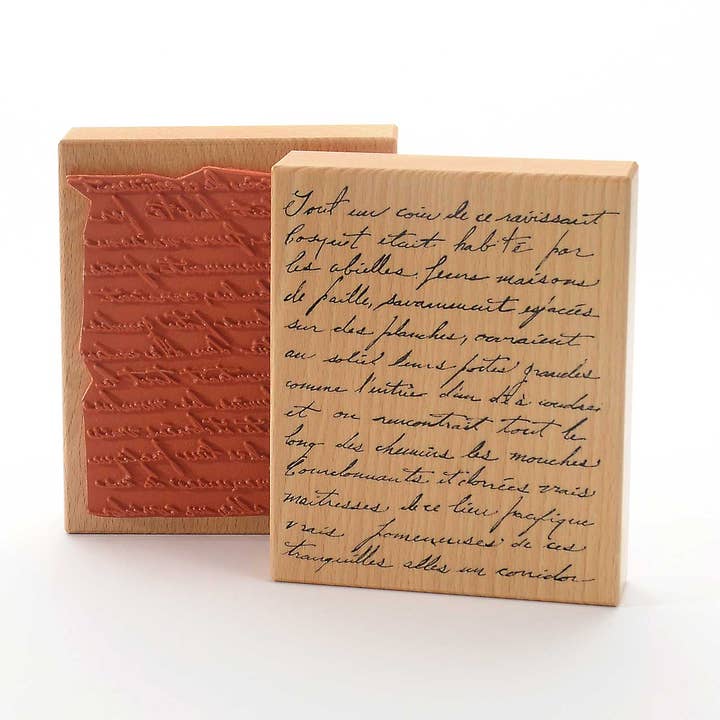 Tout un coin de ce ravissant
bosquet était habité par
les abielles. Leurs maisons
de paille, savamment espacées
sur des planches, ouvraient
au soleil leurs portes grandes
comme l'entrée d'un dé à coudre;
et on rencontrait tout le
long des chemins les mouches
bourdonnants et dorrées vrais
maitresses de ce lieu pacifique
vrais promeneuses de ces
tranquilles allés en corridor